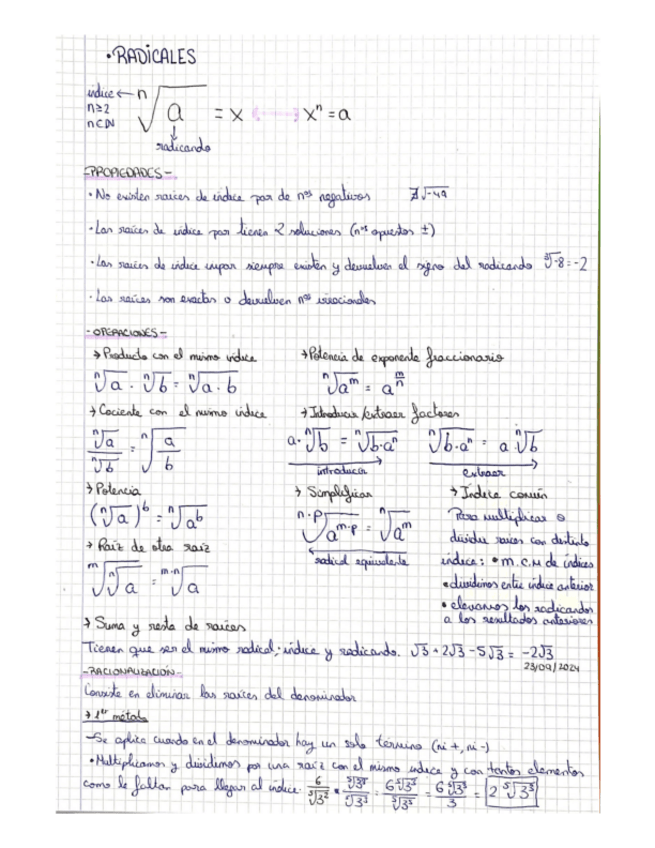 • RADICALES
índice ← n√a = x ←---→ xⁿ = a
n≥2
n∈ℕ
↓
radicando
-PROPIEDADES-
• No existen raíces de índice par de nºs negativos ∄√-49
• Las raíces de índice par tienen 2 soluciones (nºs opuestos ±)
• Las raíces de índice impar siempre existen y devuelven el signo del radicando ³√-8 = -2
• Las raíces son exactas o devuelven nºs irracionales
-OPERACIONES-
→ Producto con el mismo índice
ⁿ√a · ⁿ√b = ⁿ√a·b
→ Potencia de exponente fraccionario
ⁿ√aᵐ = a^(m/n)
→ Cociente con el mismo índice
ⁿ√a / ⁿ√b = ⁿ√(a/b)
→ Introducir/extraer factores
a·ⁿ√b = ⁿ√b·aⁿ
introducir
ⁿ√b·aⁿ = a ⁿ√b
extraer
→ Potencia
(ⁿ√a)ᵇ = ⁿ√aᵇ
→ Simplificar
n·p√a^(m·p) = ⁿ√aᵐ
radical equivalente
→ Índice común
Para multiplicar o
dividir raíces con distinto
índice: • m.c.m de índices
• dividimos entre índice anterior
• elevamos los radicandos
a los resultados anteriores
→ Raíz de otra raíz
ᵐ√ⁿ√a = m·n√a
→ Suma y resta de raíces
Tienen que ser el mismo radical; índice y radicando. √3 + 2√3 - 5√3 = -2√3
23/09/2024
-RACIONALIZACIÓN-
Consiste en eliminar las raíces del denominador
→ 1er método
-Se aplica cuando en el denominador hay un solo término (ni +, ni -)
• Multiplicamos y dividimos por una raíz con el mismo índice y con tantos elementos
como le faltan para llegar al índice. 6/⁵√3² • ⁵√3³/⁵√3³ = 6⁵√3³/⁵√3⁵ = 6⁵√3³/3 = 2 ⁵√3³